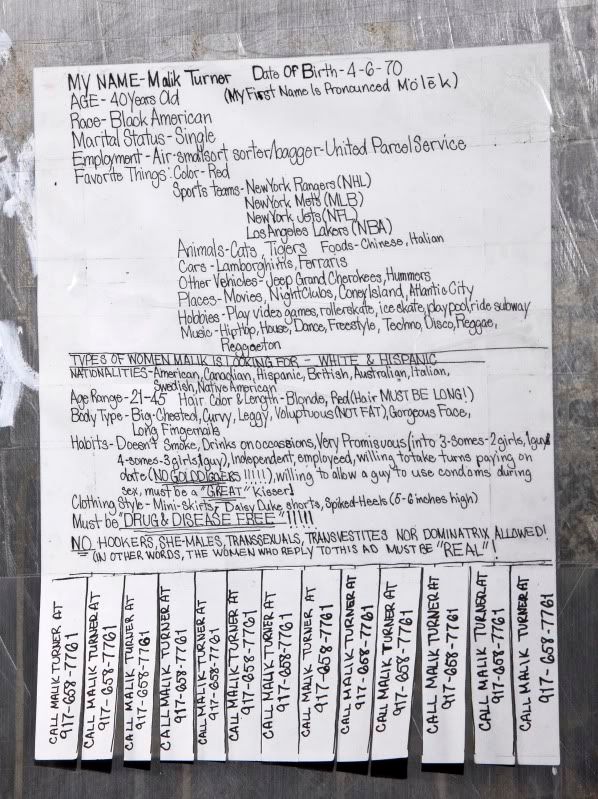 MY NAME-Malik Turner Date Of Birth-4-6-70
AGE-40 Years Old (My First Name Is Pronounced Mölēk)
Race-Black American
Marital Status-Single
Employment-Air-smallsort sorter/bagger-United Parcel Service
Favorite Things: Color-Red
Sports Teams-New York Rangers (NHL)
New York Mets (MLB)
New York Jets (NFL)
Los Angeles Lakers (NBA)
Animals-Cats, Tigers Foods-Chinese, Italian
Cars-Lamborghinis, Ferraris
Other Vehicles-Jeep Grand Cherokees, Hummers
Places-Movies, NightClubs, Coney Island, Atlantic City
Hobbies-Play video games, rollerskate, ice skate, play pool, ride subway
Music-HipHop, House, Dance, Freestyle, Techno, Disco, Reggae,
Reggaeton
TYPES OF WOMEN MALIK IS LOOKING FOR - WHITE & HISPANIC
NATIONALITIES-American, Canadian, Hispanic, British, Australian, Italian,
Swedish, Native American
Age Range-21-45 Hair Color & Length-Blonde, Red (Hair MUST BE LONG!)
Body Type-Big-Chested, Curvy, Leggy, Voluptuous (NOT FAT), Gorgeous Face,
Long Fingernails
Habits-Doesn't Smoke, Drinks on occassions, Very Promisuous (into 3-somes-2 girls, 1 guy
4-somes-3 girls, 1 guy), Independent, employeed, willing to take turns paying on
date (NO GOLDDIGGERS !!!!!), willing to allow a guy to use condoms during
sex, must be a "GREAT" Kisser!
Clothing Style-Mini-Skirts, Daisy Duke shorts, Spiked-Heels (5-6 inches high)
Must be "DRUG & DISEASE FREE" !!!!!
NO HOOKERS, SHE-MALES, TRANSSEXUALS, TRANSVESTITES NOR DOMINATRIX ALLOWED!
(IN OTHER WORDS, THE WOMEN WHO REPLY TO THIS AD MUST BE "REAL"!
CALL MALIK TURNER AT
917-658-7761
CALL MALIK TURNER AT
917-658-7761
CALL MALIK TURNER AT
917-658-7761
CALL MALIK TURNER AT
917-658-7761
CALL MALIK TURNER AT
917-658-7761
CALL MALIK TURNER AT
917-658-7761
CALL MALIK TURNER AT
917-658-7761
CALL MALIK TURNER AT
917-658-7761
CALL MALIK TURNER AT
917-658-7761
CALL MALIK TURNER AT
917-658-7761
CALL MALIK TURNER AT
917-658-7761
CALL MALIK TURNER AT
917-658-7761
CALL MALIK TURNER AT
917-658-7761